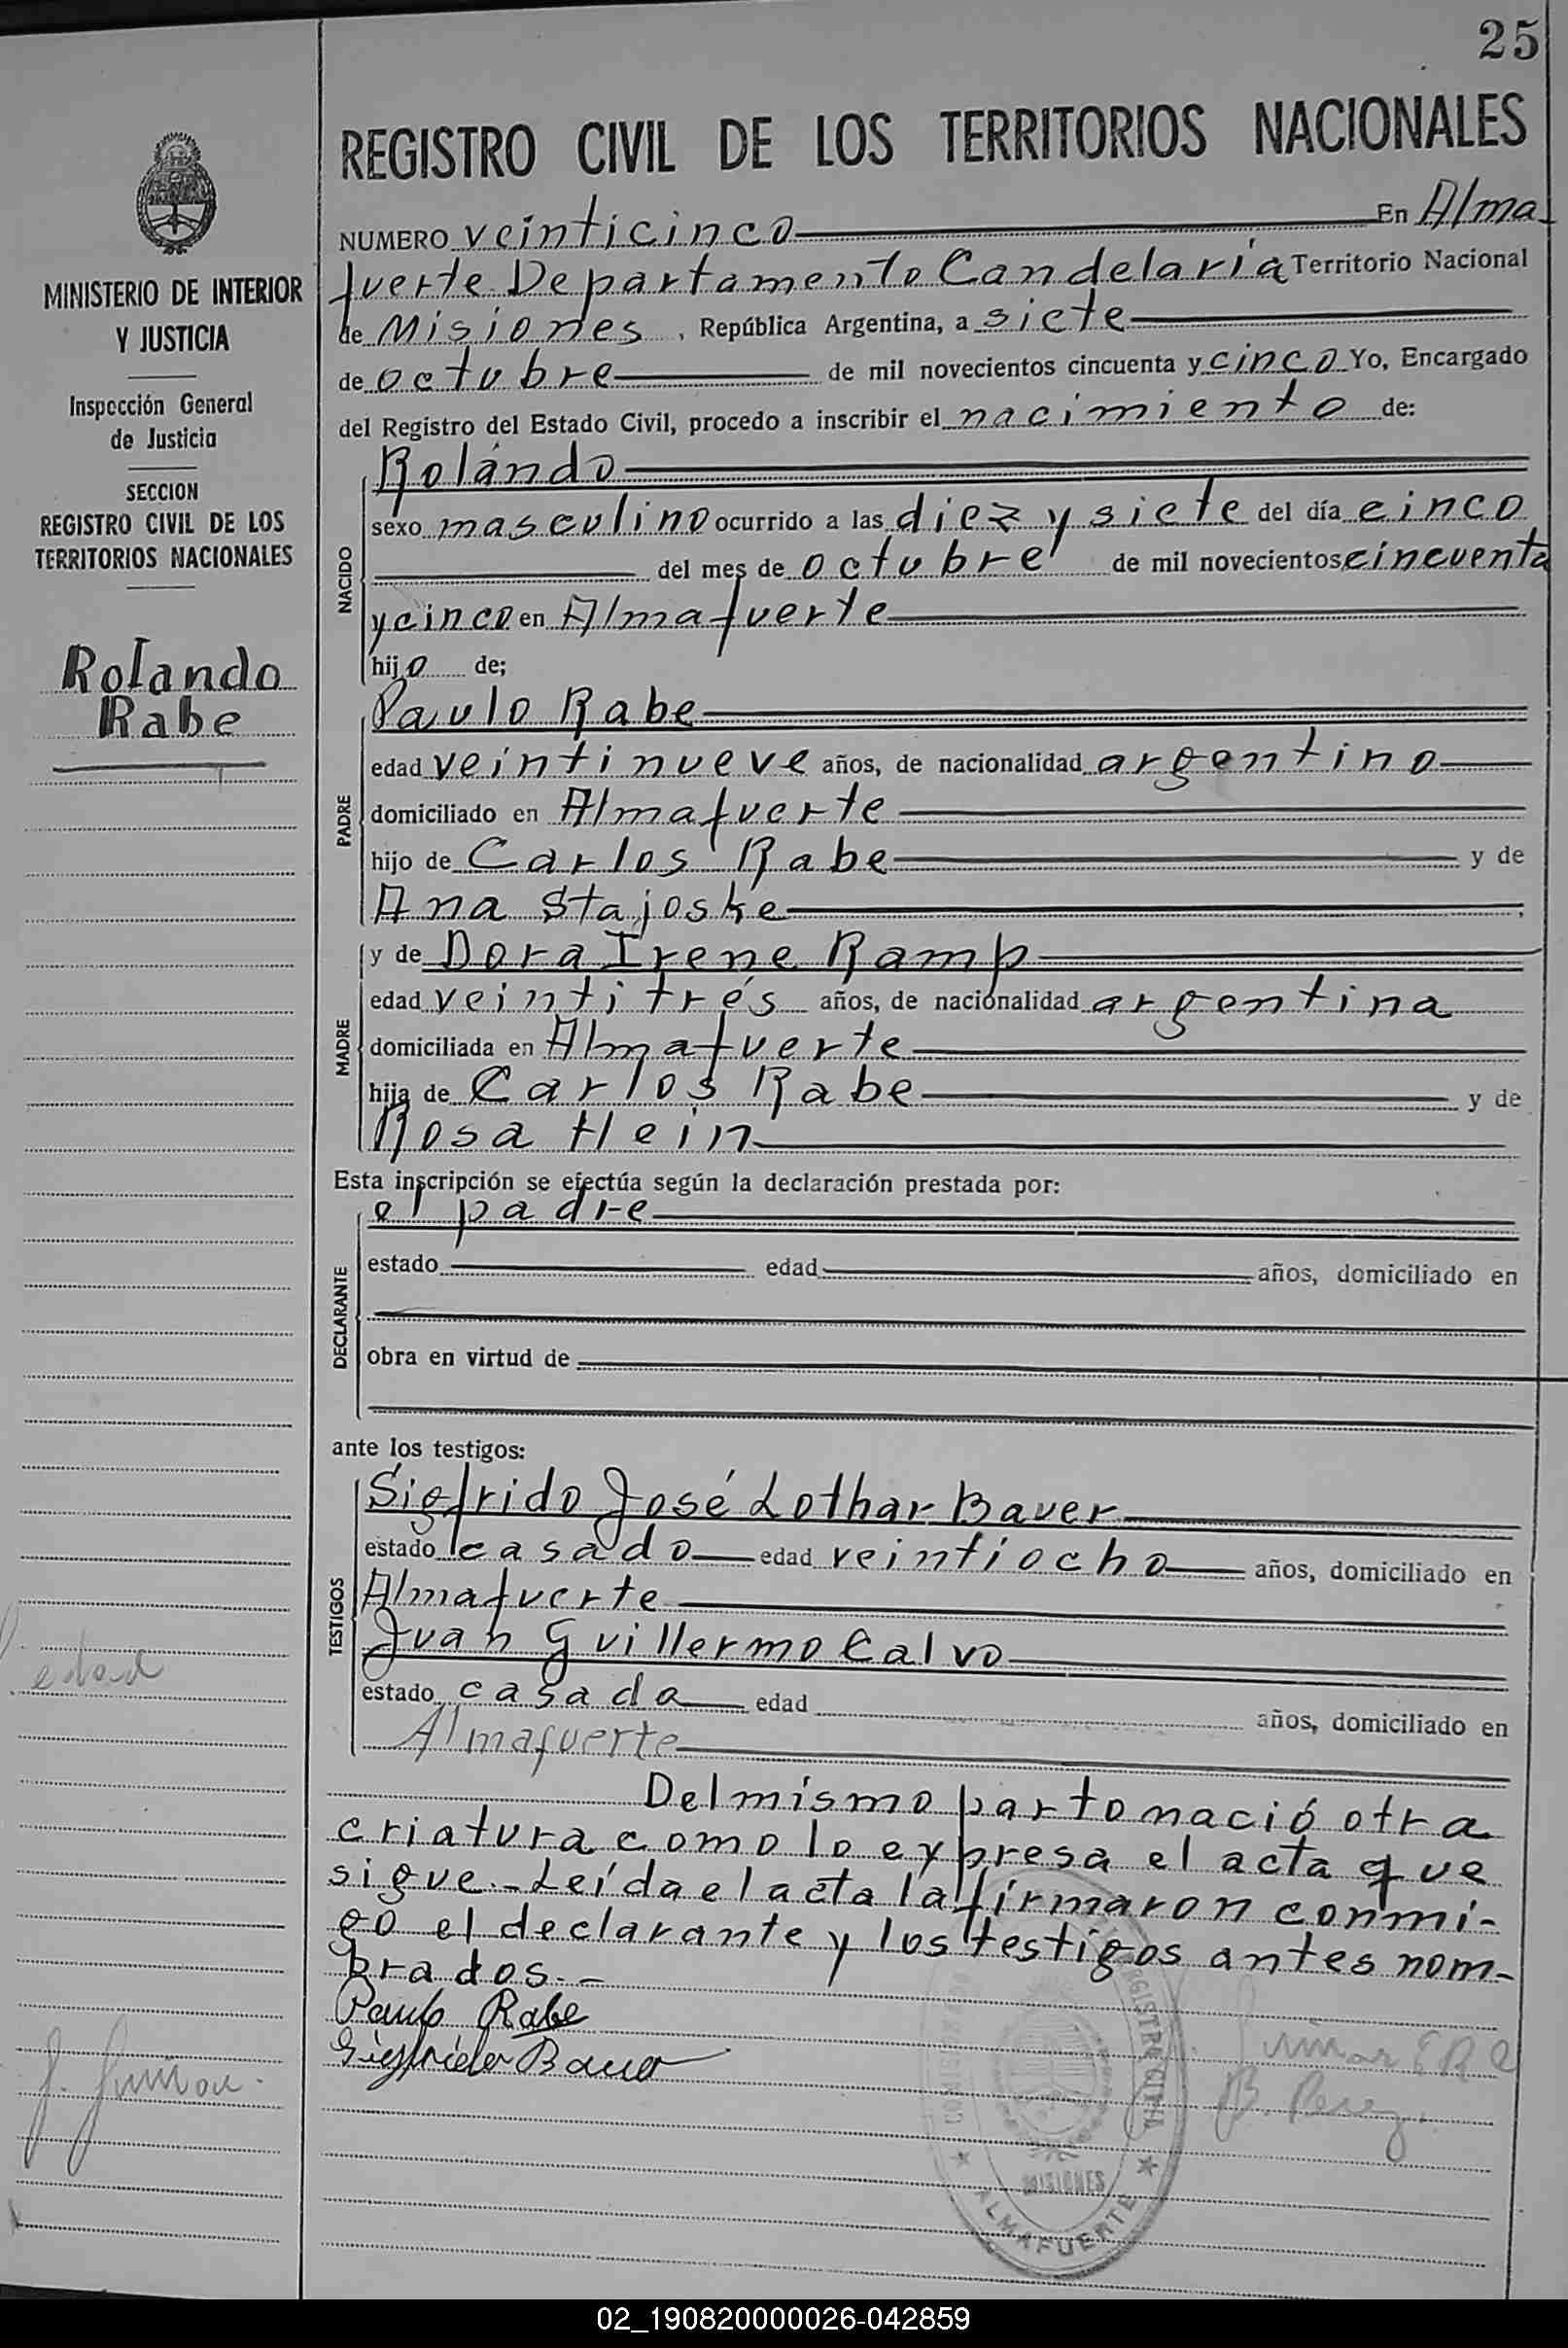 25
REGISTRO CIVIL DE LOS TERRITORIOS NACIONALES
MINISTERIO DE INTERIOR
Y JUSTICIA
Inspección General
de Justicia
SECCION
REGISTRO CIVIL DE LOS
TERRITORIOS NACIONALES
Rolando
Rabe
edad
NUMERO veinticinco En Alma
fuerte Departamento Candelaria Territorio Nacional
de Misiones, República Argentina, a siete
de octubre de mil novecientos cincuenta y cinco Yo, Encargado
del Registro del Estado Civil, procedo a inscribir el nacimiento de:
NACIDO
Rolando
sexo masculino ocurrido a las diez y siete del día cinco
del mes de octubre de mil novecientos cincuenta
y cinco en Almafuerte
hijo de;
PADRE
Paulo Rabe
edad veintinueve años, de nacionalidad argentino
domiciliado en Almafuerte
hijo de Carlos Rabe y de
Ana Stajoske;
MADRE
y de Dora Irene Ramp
edad veintitrés años, de nacionalidad argentina
domiciliada en Almafuerte
hija de Carlos Rabe y de
Rosa Hein
Esta inscripción se efectúa según la declaración prestada por:
DECLARANTE
el padre
estado edad años, domiciliado en
obra en virtud de
ante los testigos:
TESTIGOS
Sigfrido José Lothar Bauer
estado casado edad veintiocho años, domiciliado en
Almafuerte
Juan Guillermo Calvo
estado casada edad años, domiciliado en
Almafuerte
Del mismo parto nació otra
criatura como lo expresa el acta que
sigue.- Leída el acta la firmaron conmi-
go el declarante y los testigos antes nom-
brados.-
Paulo Rabe
Siegfrieder Bauer
B. Perez
REGISTRO CIVIL
MISIONES
ALMAFUERTE
02_190820000026-042859